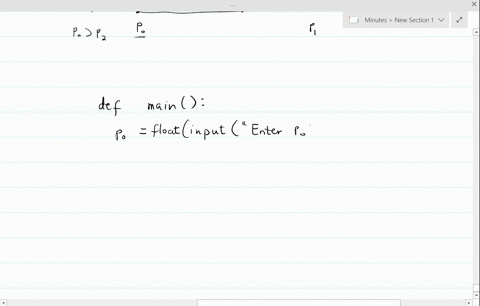 P₀ > P₂ P₀ P₁
Minutes > New Section 1
def main():
P₀ = float(input("Enter P₀